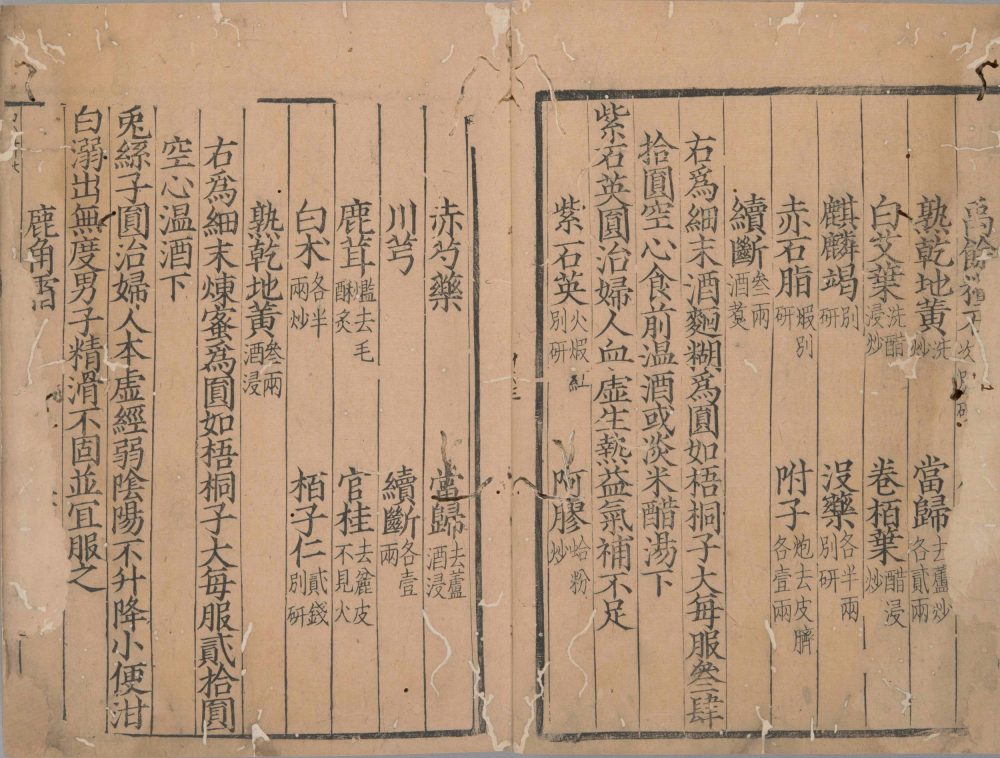 禹餘粮 次
熟乾地黃洗炒 當歸去蘆炒各貳兩
白艾葉洗醋浸炒 卷栢葉醋浸炒
麒麟竭別研 沒藥各半兩別研
赤石脂煆別研 附子炮去皮臍各壹兩
續斷叁兩酒蒸
右爲細末酒麪糊爲圓如梧桐子大每服叄肆
拾圓空心食前温酒或淡米醋湯下
紫石英圓治婦人血虛生熱益氣補不足
紫石英火煆紅別研 阿膠蛤粉炒
赤芍藥 當歸去蘆酒浸
川芎 續斷各壹兩
鹿茸爁去毛酥炙 官桂去麄皮不見火
白朮各半兩炒 栢子仁貳錢別研
熟乾地黃叁兩酒浸
右爲細末煉蜜爲圓如梧桐子大每服貳拾圓
空心温酒下
兎絲子圓治婦人本虛經弱陰陽不升降小便泔
白溺出無度男子精滑不固並宜服之
鹿角霜